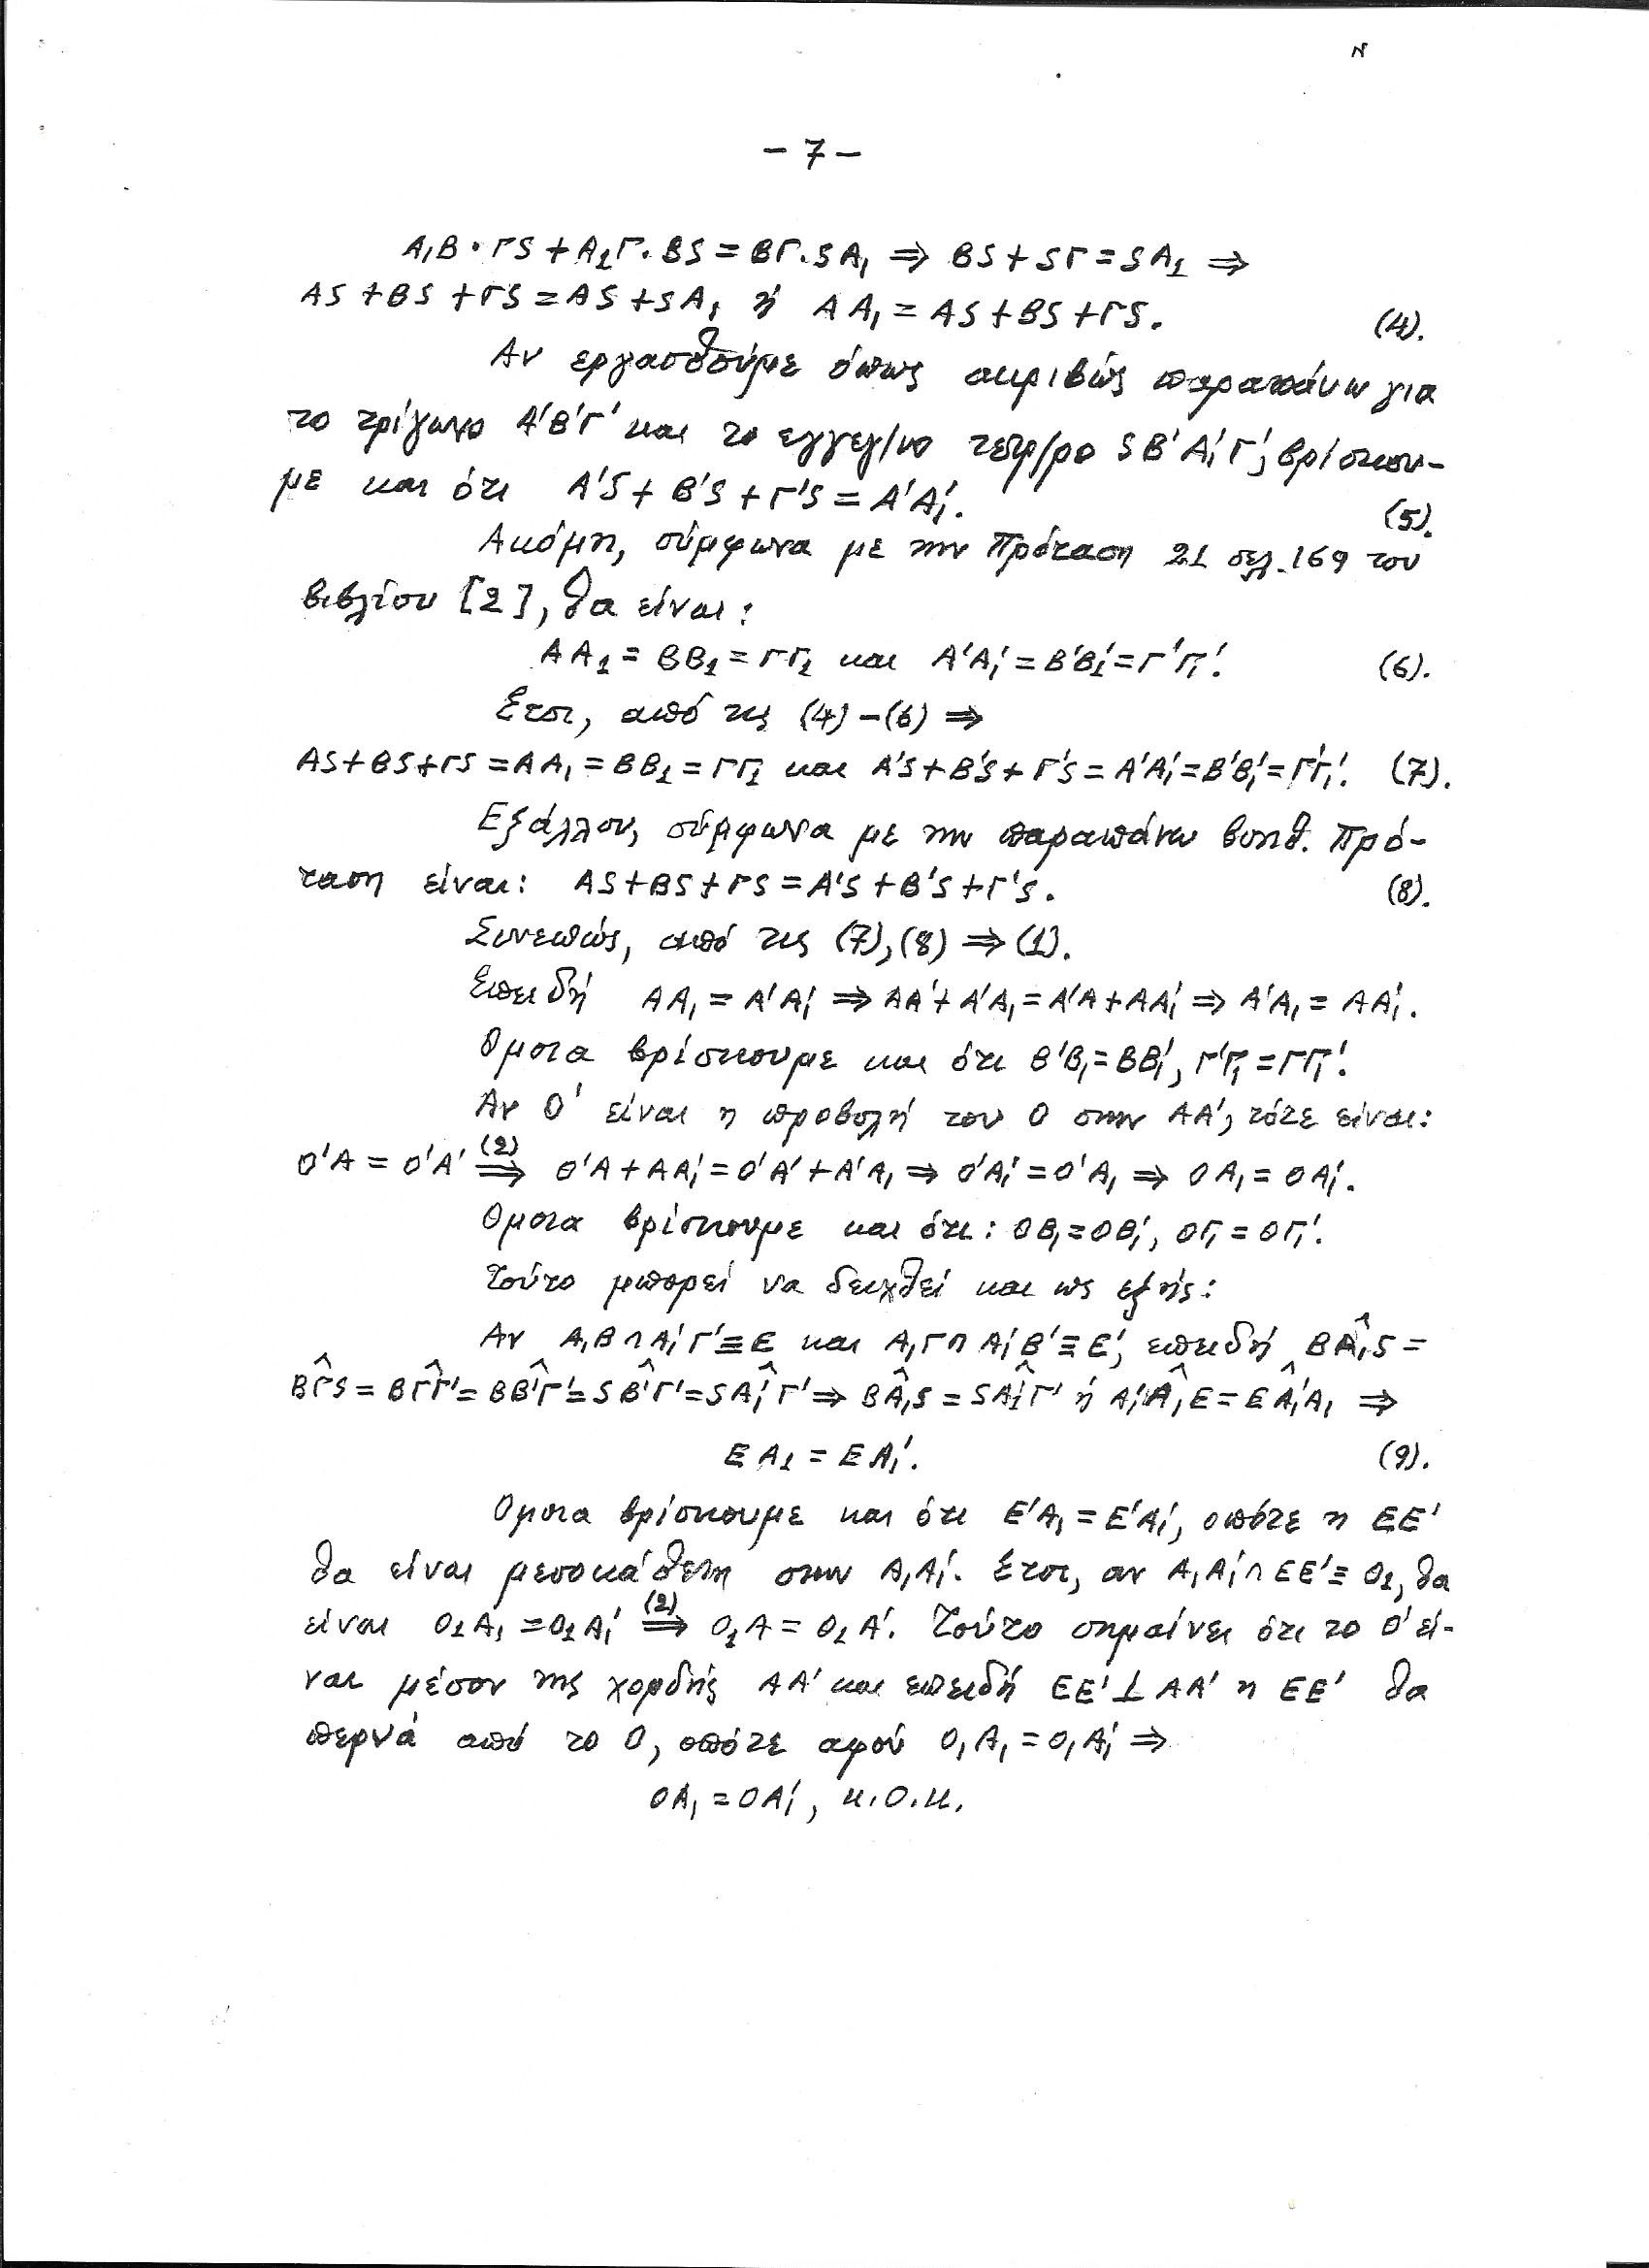 - 7 -
A₁B · ΓS + A₁Γ · BS = BΓ · SA₁ ⇒ BS + SΓ = SA₁ ⇒
AS + BS + ΓS = AS + SA₁ ή AA₁ = AS + BS + ΓS. (4).
Αν εργασθούμε όπως ακριβώς παραπάνω για
το τρίγωνο A'B'Γ' και το εγγεγ/νο τετρ/ρο SB'A₁'Γ', βρίσκου-
με και ότι A'S + B'S + Γ'S = A'A₁'. (5).
Ακόμη, σύμφωνα με την Πρόταση 21 σελ. 169 του
βιβλίου [2], θα είναι:
AA₁ = BB₁ = ΓΓ₁ και A'A₁' = B'B₁' = Γ'Γ₁'. (6).
Έτσι, από τις (4) - (6) ⇒
AS + BS + ΓS = AA₁ = BB₁ = ΓΓ₁ και A'S + B'S + Γ'S = A'A₁' = B'B₁' = Γ'Γ₁'. (7).
Εξάλλου, σύμφωνα με την παραπάνω βοηθ. Πρό-
ταση είναι: AS + BS + ΓS = A'S + B'S + Γ'S. (8).
Συνεπώς, από τις (7), (8) ⇒ (1).
Επειδή AA₁ = A'A₁' ⇒ AA' + A'A₁ = A'A + AA₁' ⇒ A'A₁ = AA₁'.
Όμοια βρίσκουμε και ότι B'B₁ = BB₁', Γ'Γ₁ = ΓΓ₁'.
Αν O' είναι η προβολή του O στην AA', τότε είναι:
O'A = O'A' (2)⇒ O'A + AA₁' = O'A' + A'A₁ ⇒ O'A₁' = O'A₁ ⇒ OA₁ = OA₁'.
Όμοια βρίσκουμε και ότι: OB₁ = OB₁', OΓ₁ = OΓ₁'.
Τούτο μπορεί να δειχθεί και ως εξής:
Αν A₁B ∩ A₁'Γ' ≡ E και A₁Γ ∩ A₁'B' ≡ E', επειδή BÂ₁S =
BΓ̂S = BΓ̂Γ' = BB̂'Γ' = SB̂'Γ' = SÂ₁'Γ' ⇒ BÂ₁S = SÂ₁'Γ' ή A₁'Â₁E = EÂ₁'A₁ ⇒
EA₁ = EA₁'. (9).
Όμοια βρίσκουμε και ότι E'A₁ = E'A₁', οπότε η EE'
θα είναι μεσοκάθετη στην A₁A₁'. Έτσι, αν A₁A₁' ∩ EE' ≡ O₁, θα
είναι O₁A₁ = O₁A₁' (2)⇒ O₁A = O₁A'. Τούτο σημαίνει ότι το O' εί-
ναι μέσον της χορδής AA' και επειδή EE' ⊥ AA' η EE' θα
περνά από το O, οπότε αφού O₁A₁ = O₁A₁' ⇒
OA₁ = OA₁', κ.ο.κ.